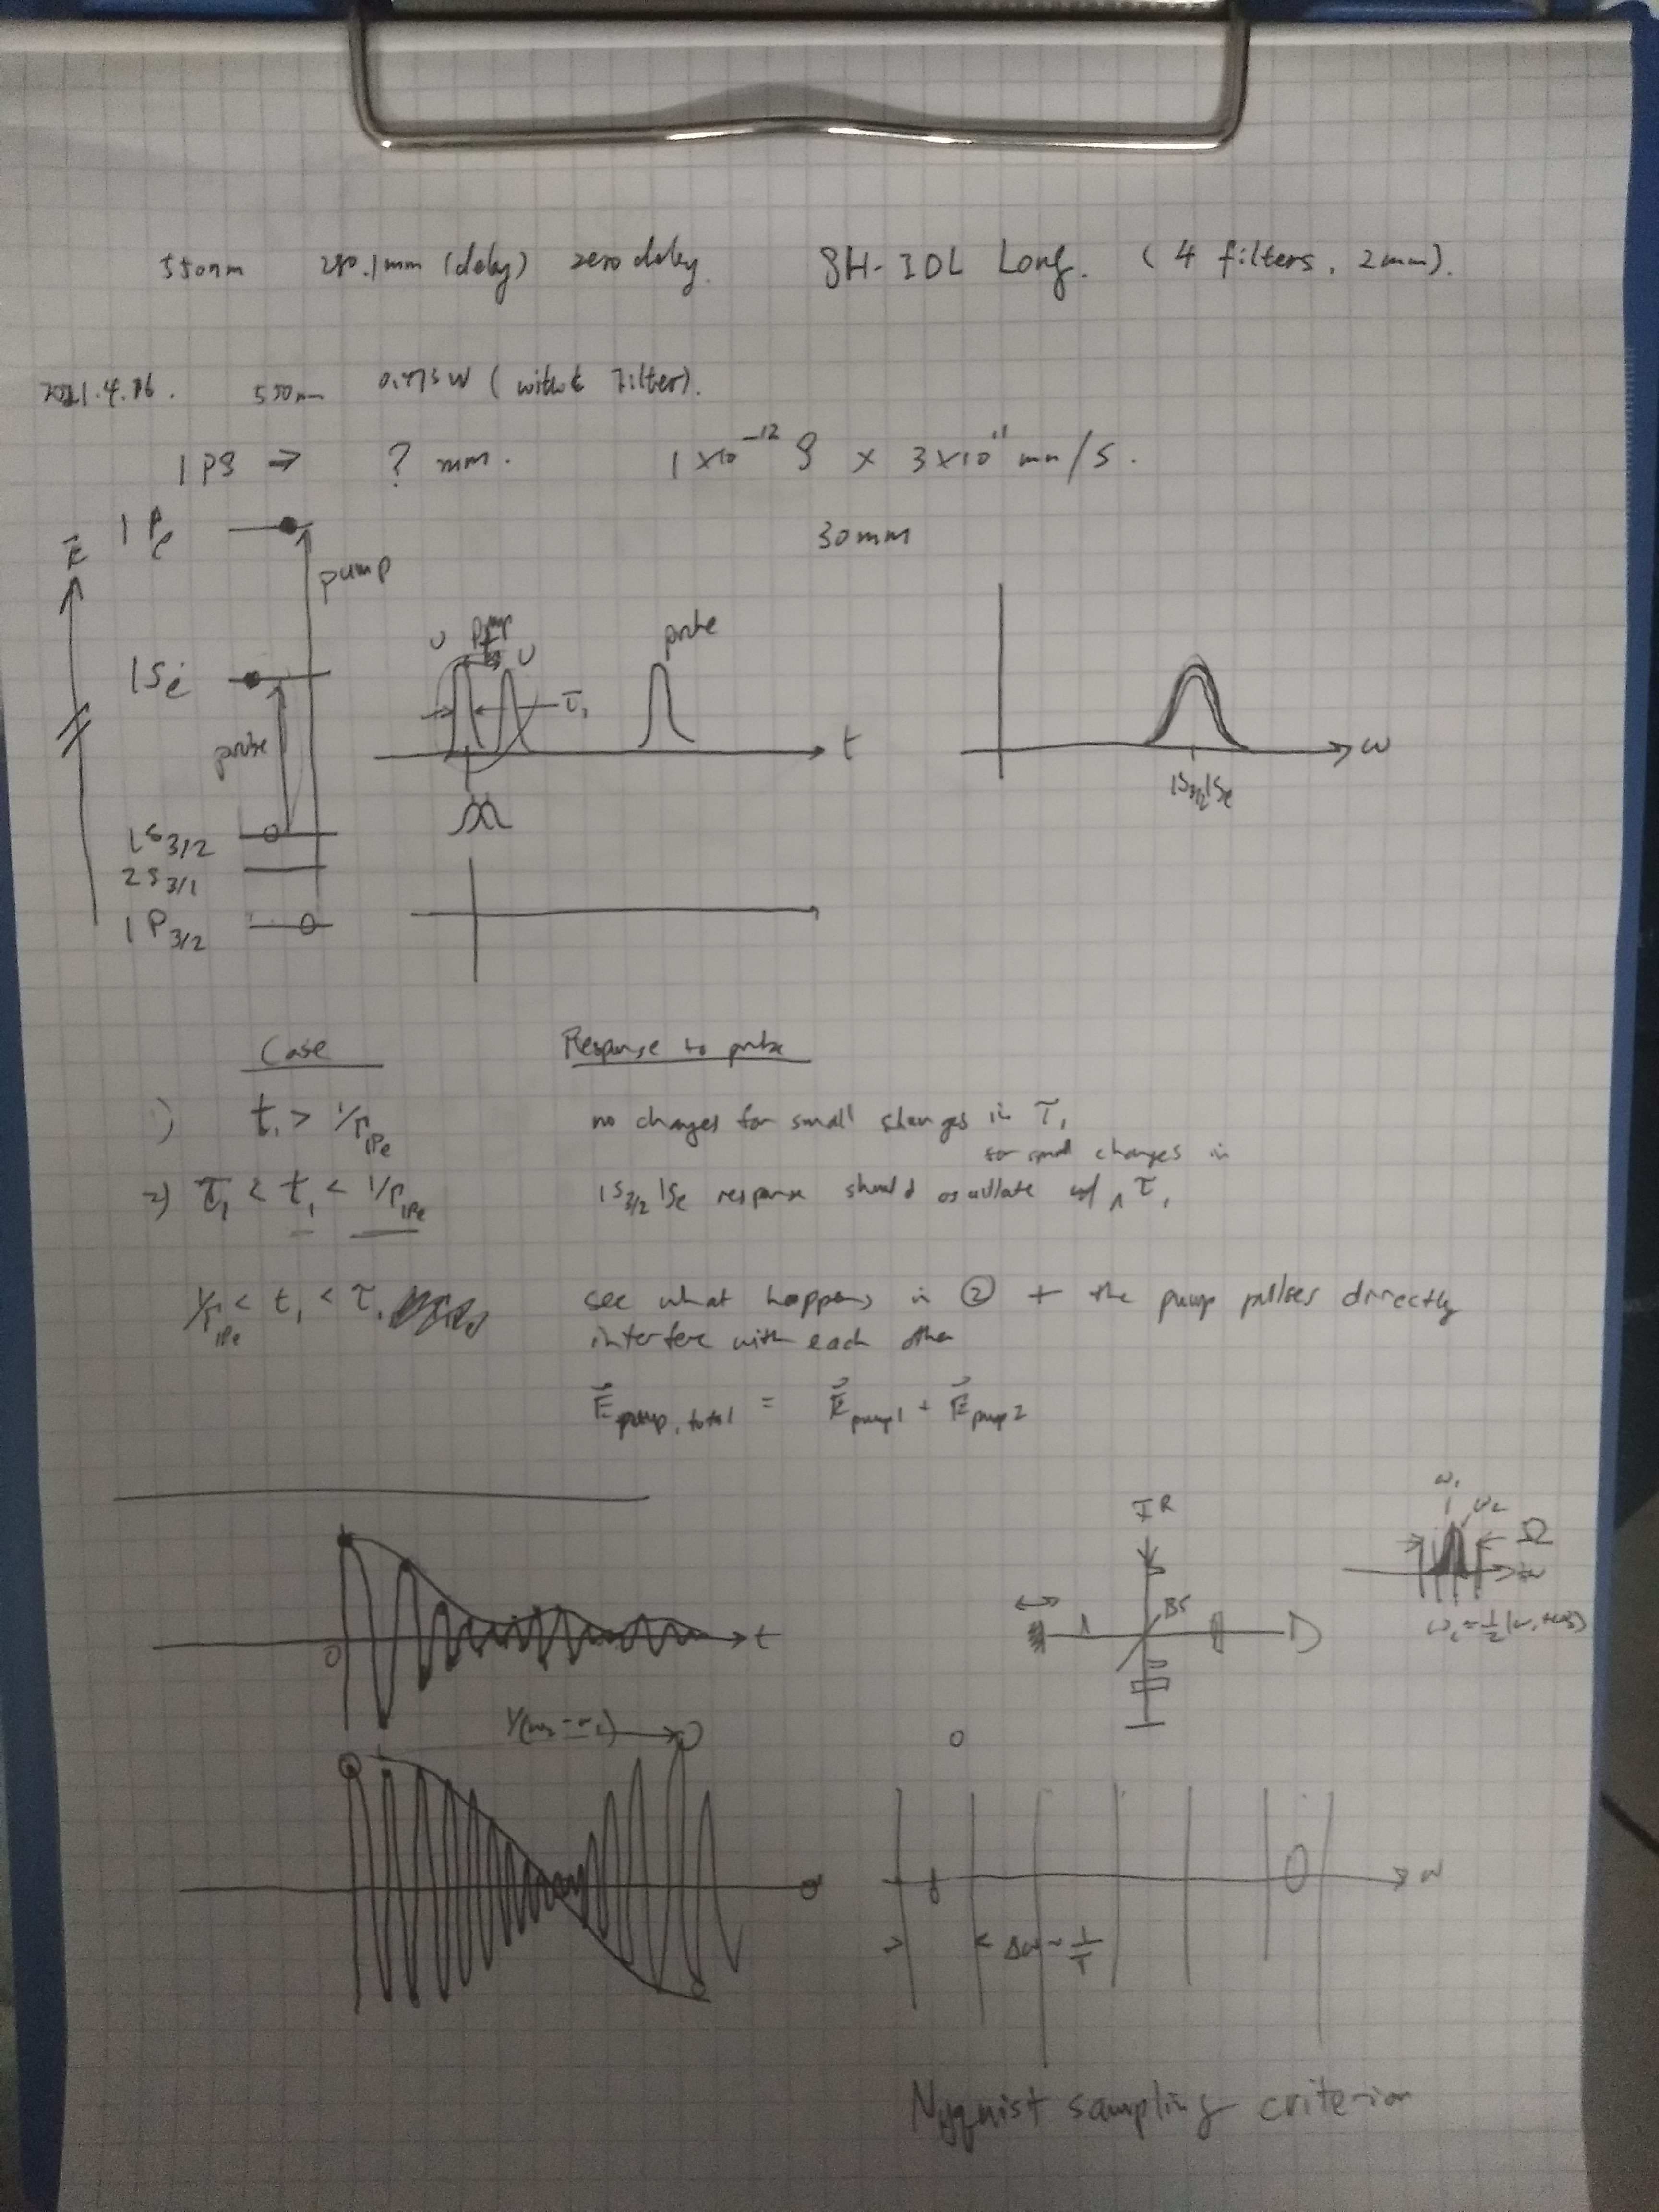 550nm 290.1mm (delay) zero delay. SH-IDL Long. (4 filters, 2mm).
2021.4.16. 550nm 0.473W (without Filter).
1 PS → ? mm. 1 × 10⁻¹² S × 3×10¹¹ mm/s.
30mm
E
1Pe
pump
1Se
probe
1S3/2
2S3/2
1P3/2
pump
probe
τ₁
t
ω
1S3/2 1Se
Case Response to probe
1) t₁ > 1/Γ1Pe no changes for small changes in τ₁
for small changes in
2) τ₁ < t₁ < 1/Γ1Pe 1S3/2 1Se response should oscillate w/ ∧ τ₁
1/Γ1Pe < t₁ < τ₁ see what happens in ② + the pump pulses directly
interfere with each other
E⃗pump, total = E⃗pump1 + E⃗pump2
0
t
IR
BS
ω₁
ω₂
Ω
ω
Δω ~ 1/T
ω
Nyquist sampling criterion